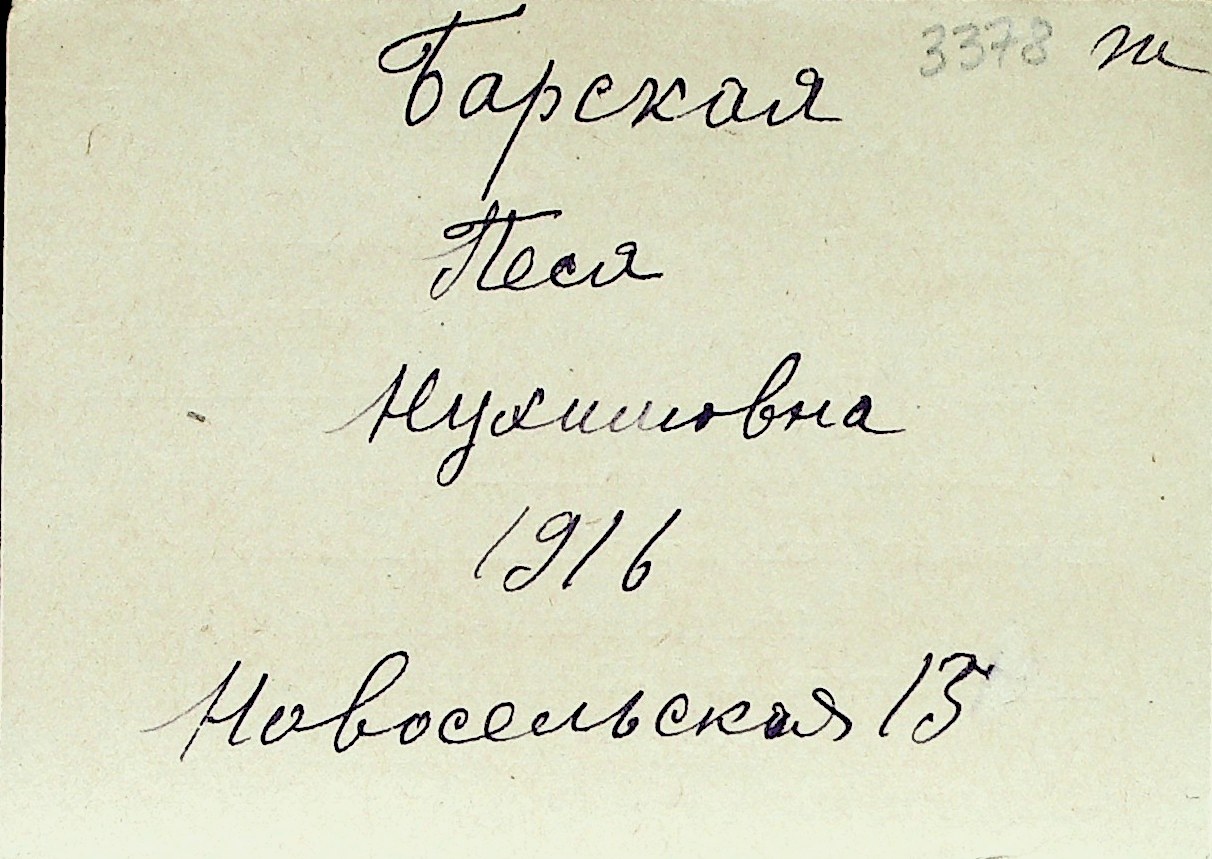 Барская 3378 т
Песя
Нухимовна
1916
Новосельская 15